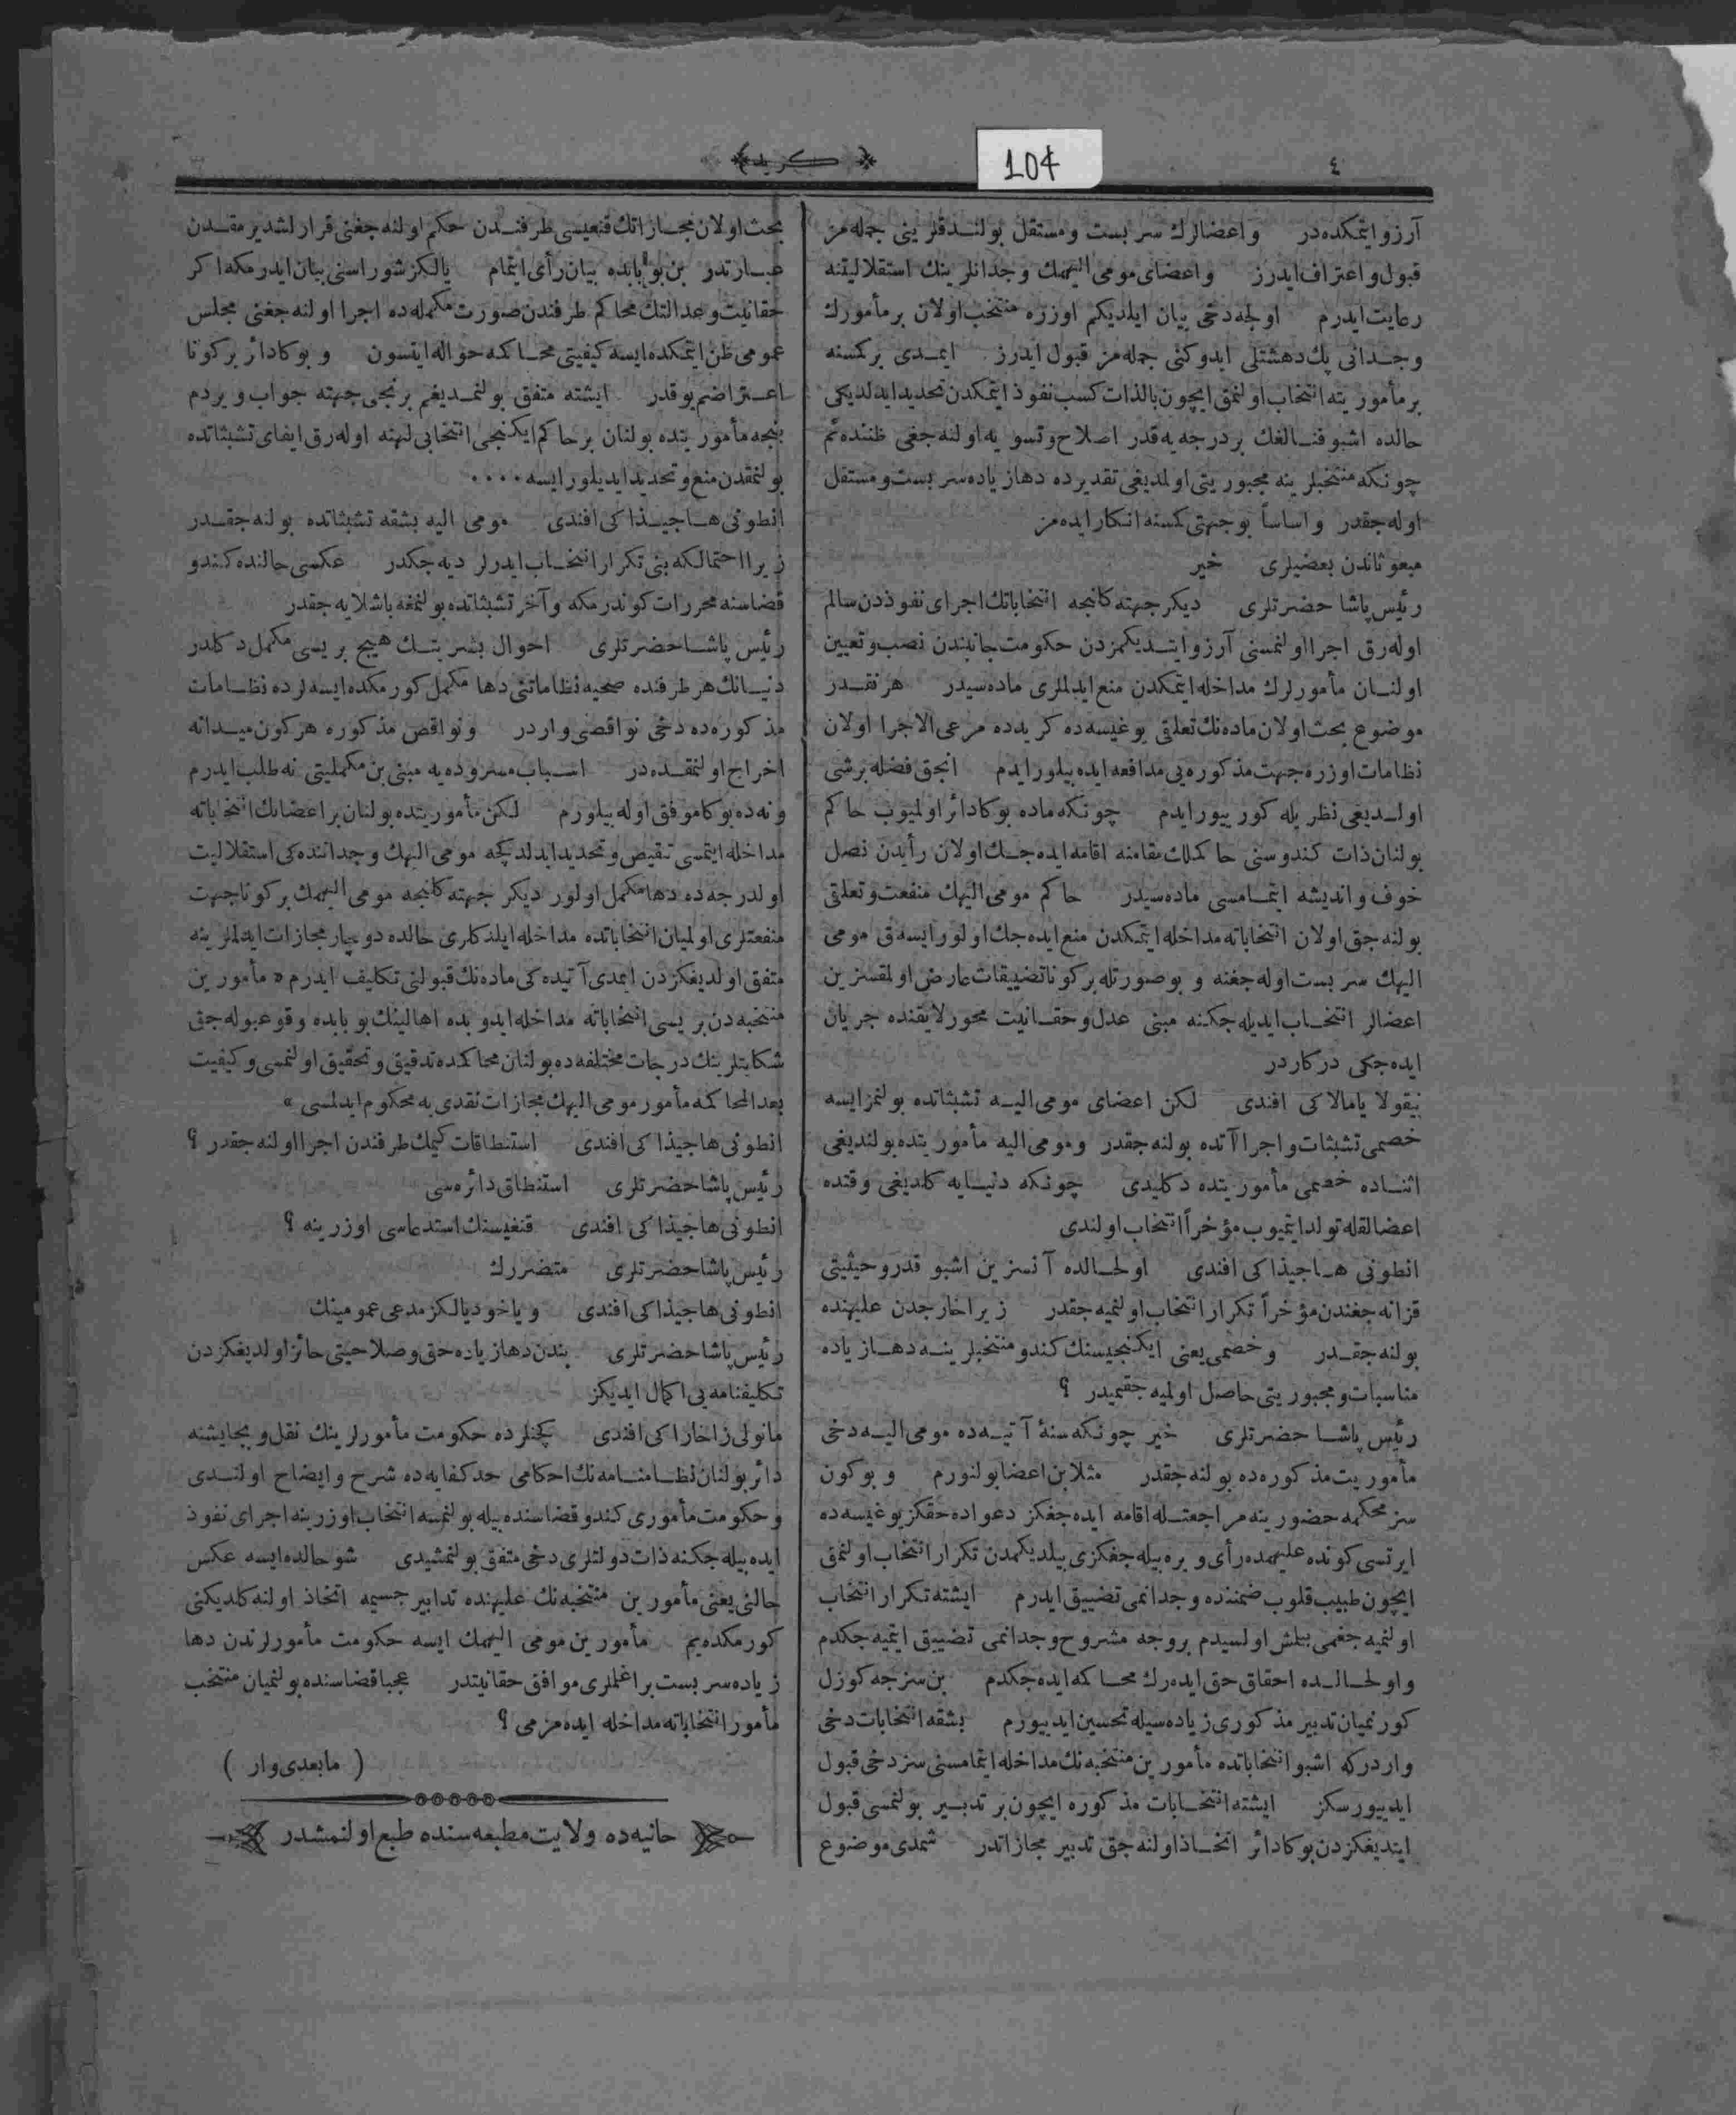 ٤
104
﴿ كريد ﴾
آرزو ايتمكده در واعضالرك سر بست ومستقل بولندقلرينى جمله مز
قبول واعتراف ايدرز واعضاى مومى اليهمك وجدانلرينك استقلاليتنه
رعايت ايدرم اولجه دخى بيان ايلديكم اوزره منتخب اولان بر مأمورك
وجدانى پك دهشتلى ايدوكنى جمله مز قبول ايدرز ايمدى بر كمسنه
بر مأموريته انتخاب اولنمق ايچون بالذات كسب نفوذ ايتمكدن تحديد ايدلديكى
حالده اشبو فنالغك بر درجه يه قدر اصلاح وتسويه اولنه جغى ظننده يم
چونكه منتخبلرينه مجبوريتى اولمديغى تقديرده دها زياده سر بست ومستقل
اوله جقدر واساساً بو جهتى كمسنه انكار ايده مز
مبعوثاندن بعضيلرى خير
رئيس پاشا حضرتلرى ديكر جهته كلنجه انتخاباتك اجراى نفوذدن سالم
اوله رق اجرا اولنمسنى آرزو ايتديكمزدن حكومت جانبندن نصب وتعيين
اولنان مأمورلرك مداخله ايتمكدن منع ايدلملرى ماده سيدر هر نقدر
موضوع بحث اولان ماده نك تعلقى يوغيسه ده كريدده مرعى الاجرا اولان
نظامات اوزره جهت مذكوره يى مدافعه ايده بيلور ايدم انجق فضله برشى
اولديغى نظريله كورييور ايدم چونكه ماده بوكا دائر اولميوب حاكم
بولنان ذات كندوسنى حاكملك مقامنه اقامه ايده جك اولان رأيدن نصل
خوف وانديشه ايتمامسى ماده سيدر حاكم مومى اليهك منفعت وتعلقى
بولنه جق اولان انتخاباته مداخله ايتمكدن منع ايده جك اولور ايسه ق مومى
اليهك سر بست اوله جغنه و بو صورتله بر كونا تضييقات عارض اولمقسزين
اعضالر انتخاب ايديله جكنه مبنى عدل وحقانيت محور لايقنده جريان
ايده جكى دركاردر
نيقولا يامالاكى افندى لكن اعضاى مومى اليه تشبثاتده بولنمز ايسه
خصمى تشبثات واجراآتده بولنه جقدر ومومى اليه مأموريتده بولنديغى
اثناده خصمى مأموريتده دكليدى چونكه دنيايه كلديغى وقتده
اعضالقله تولد ايتميوب مؤخراً انتخاب اولندى
انطونى هاجيذاكى افندى اولحالده آنسزين اشبو قدر وحيثيتى
قزانه جغندن مؤخراً تكرار انتخاب اولنميه جقدر زيرا خارجدن عليهنده
بولنه جقدر وخصمى يعنى ايكنجيسنك كندو منتخبلرينه دها زياده
مناسبات ومجبوريتى حاصل اولميه جقميدر ؟
رئيس پاشا حضرتلرى خير چونكه سنۀ آتيه ده مومى اليه دخى
مأموريت مذكوره ده بولنه جقدر مثلا بن اعضا بولنورم و بوكون
سز محكمه حضورينه مراجعتله اقامه ايده جغكز دعواده حقكز يوغيسه ده
ايرتسى كونده عليهمده رأى ويره بيله جغكزى بيلديكمدن تكرار انتخاب اولنمق
ايچون طبيب قلوب ضمننده وجدانمى تضييق ايدرم ايشته تكرار انتخاب
اولنميه جغمى بيلمش اولسيدم بر وجه مشروح وجدانمى تضييق ايتميه جكدم
واولحالده احقاق حق ايده رك محاكمه ايده جكدم بن سزجه كوزل
كورنميان تدبير مذكورى زياده سيله تحسين ايدييورم بشقه انتخابات دخى
واردركه اشبو انتخاباتده مأمورين منتخبه نك مداخله ايتمامسنى سز دخى قبول
ايدييورسكز ايشته انتخابات مذكوره ايچون بر تدبير بولنمسى قبول
ايتديغكزدن بوكا دائر اتخاذ اولنه جق تدبير مجازاتدر شمدى موضوع
بحث اولان مجازاتك قنغيسى طرفندن حكم اولنه جغنى قرارلشديرمقدن
عبارتدر بن بو بابده بيان رأى ايتمام يالكز شوراسنى بيان ايدرمكه اكر
حقانيت وعدالتك محاكم طرفندن صورت مكمله ده اجرا اولنه جغنى مجلس
عمومى ظن ايتمكده ايسه كيفيتى محاكمه حواله ايتسون و بوكا دائر بر كونا
اعتراضم يوقدر ايشته متفق بولنمديغم برنجى جهته جواب ويردم
بنجه مأموريتده بولنان بر حاكم ايكنجى انتخابى لهنه اوله رق ايفاى تشبثاتده
بولنمقدن منع وتحديد ايديلور ايسه ....
انطونى هاجيذاكى افندى مومى اليه بشقه تشبثاتده بولنه جقدر
زيرا احتمالكه بنى تكرار انتخاب ايدرلر ديه جكدر عكسى حالنده كندو
قضاسنه محررات كوندرمكه وآخر تشبثاتده بولنمغه باشلايه جقدر
رئيس پاشا حضرتلرى احوال بشريتك هيچ بريسى مكمل دكلدر
دنيانك هر طرفنده صحيه نظاماتنى دها مكمل كورمكده ايسه لرده نظامات
مذكوره ده دخى نواقصى واردر ونواقص مذكوره هر كون ميدانه
اخراج اولنمقده در اسباب مسروده يه مبنى بن مكمليتى نه طلب ايدرم
ونه ده بوكا موفق اوله بيلورم لكن مأموريتده بولنان بر اعضانك انتخاباته
مداخله ايتمسى تنقيص وتحديد ايدلدكجه مومى اليهك وجداننده كى استقلاليت
اولدرجه ده دها مكمل اولور ديكر جهته كلنجه مومى اليهمك بر كونا جهت
منفعتلرى اولميان انتخاباتده مداخله ايلدكلرى حالده دوچار مجازات ايدلملرينه
متفق اولديغكزدن ايمدى آتيده كى ماده نك قبولنى تكليف ايدرم « مأمورين
منتخبه دن بريسى انتخاباته مداخله ايدوبده اهالينك بو بابده وقوعبوله جق
شكايتلرينك درجات مختلفه ده بولنان محاكمده تدقيق وتحقيق اولنمسى وكيفيت
بعد المحاكمه مأمور مومى اليهك مجازات نقدى يه محكوم ايدلمسى »
انطونى هاجيذاكى افندى استنطاقات كيمك طرفندن اجرا اولنه جقدر ؟
رئيس پاشا حضرتلرى استنطاق دائره سى
انطونى هاجيذاكى افندى قنغيسنك استدعاسى اوزرينه ؟
رئيس پاشا حضرتلرى متضررك
انطونى هاجيذاكى افندى وياخود يالكز مدعى عمومينك
رئيس پاشا حضرتلرى بندن دها زياده حق وصلاحيتى حائز اولديغكزدن
تكليفنامه يى اكمال ايديكز
مانولى زاخاراكى افندى كچنلرده حكومت مأمورلرينك نقل وبجايشنه
دائر بولنان نظامنامه نك احكامى حد كفايه ده شرح وايضاح اولندى
وحكومت مأمورى كندو قضاسنده بيله بولنمسه انتخاب اوزرينه اجراى نفوذ
ايده بيله جكنه ذات دولتلرى دخى متفق بولنمشيدى شو حالده ايسه عكس
حالنى يعنى مأمورين منتخبه نك عليهنده تدابير جسيمه اتخاذ اولنه كلديكنى
كورمكده يم مأمورين مومى اليهمك ايسه حكومت مأمورلرندن دها
زياده سر بست براغلملرى موافق حقانيتدر عجبا قضاسنده بولنميان منتخب
مأمور انتخاباته مداخله ايده مزمى ؟
( مابعدى وار )
حانيه ده ولايت مطبعه سنده طبع اولنمشدر